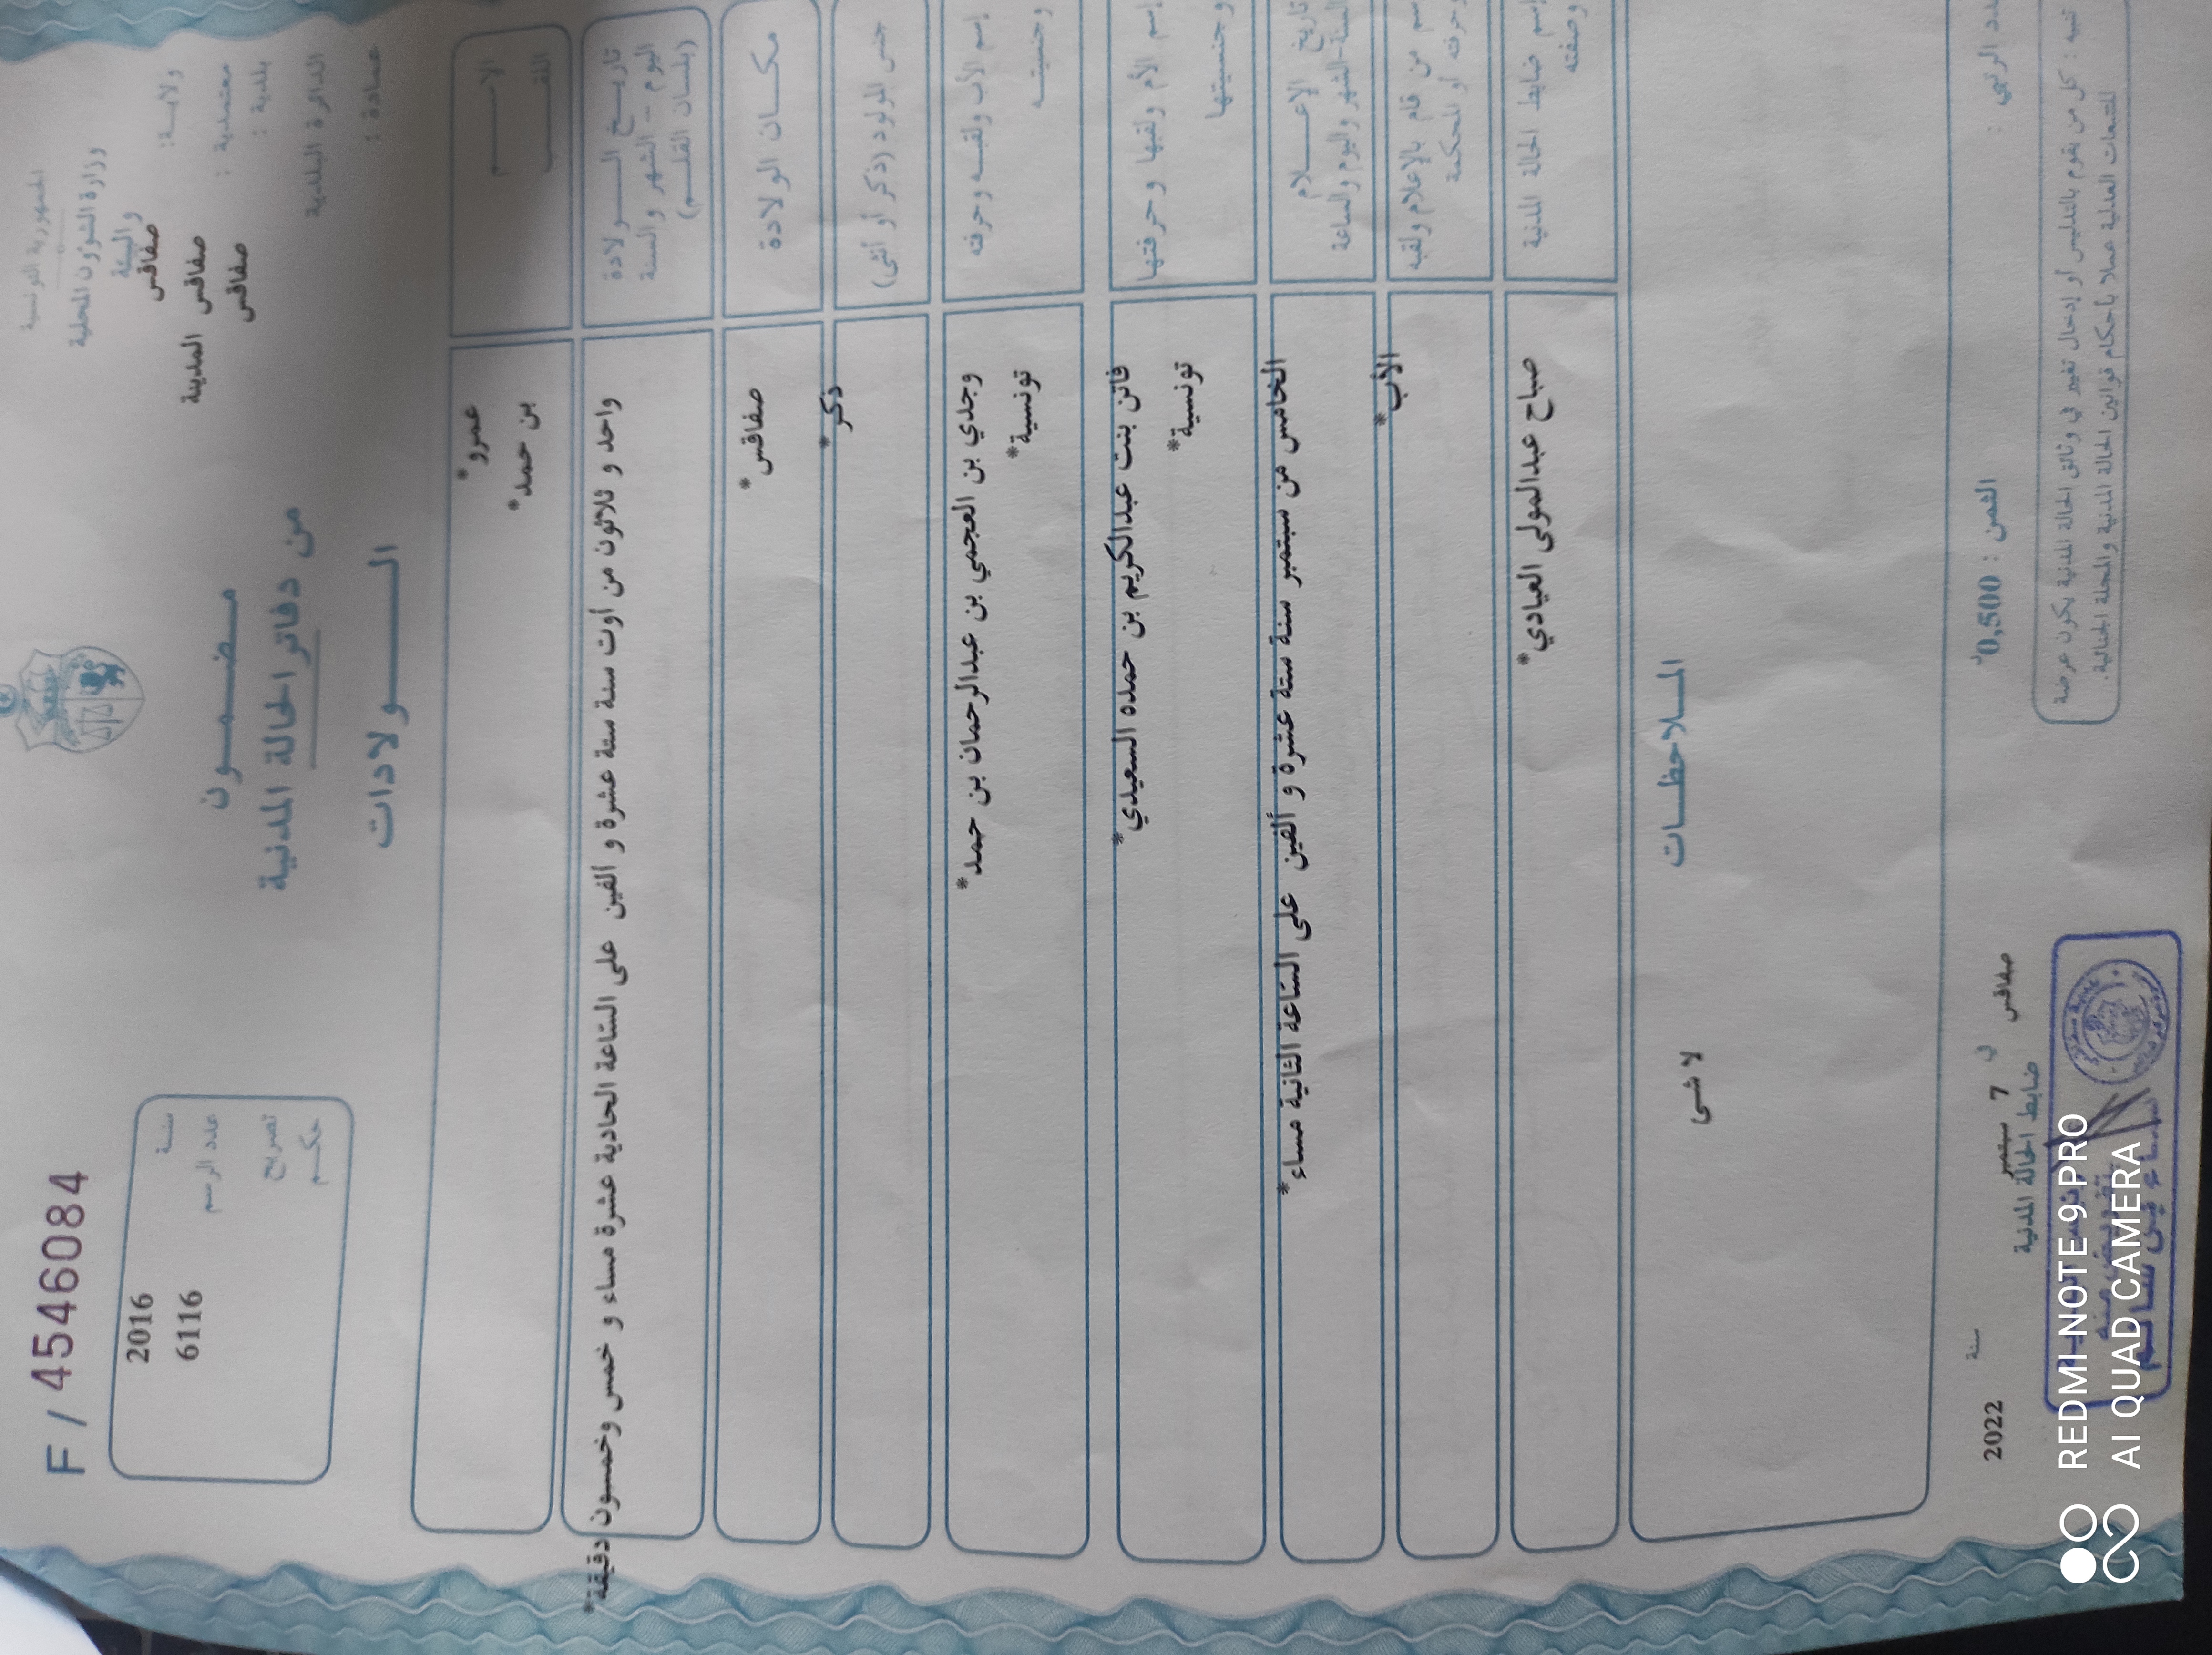 الجمهورية التونسية
وزارة الشؤون المحلية
والبيئة
ولاية: صفاقس
معتمدية : صفاقس المدينة
بلدية : صفاقس
الدائرة البلدية
عمادة :
F / 4546084
سنة 2016
عدد الرسم 6116
تصريح
حكم
مضمون
من دفاتر الحالة المدنية
الولادات
الاسم عمرو*
اللقب بن حمد*
تاريخ الولادة
اليوم - الشهر والسنة
(بلسان القلم)
واحد و ثلاثون من أوت سنة ستة عشرة و ألفين على الساعة الحادية عشرة مساء و خمس وخمسون دقيقة*
مكان الولادة صفاقس*
جنس المولود (ذكر أو أنثى) ذكر*
إسم الأب ولقبه وحرفته وجدي بن العجمي بن عبدالرحمان بن حمد*
وجنسيته تونسية*
إسم الأم ولقبها وحرفتها فاتن بنت عبدالكريم بن حمده السعيدي*
وجنسيتها تونسية*
تاريخ الإعلام
السنة-الشهر واليوم والساعة
الخامس من سبتمبر سنة ستة عشرة و ألفين على الساعة الثانية مساء*
إسم من قام بالإعلام ولقبه
وحرفته أو المحكمة
الأب*
إسم ضابط الحالة المدنية
وصفته
صباح عبدالمولى العيادي*
الملاحظات
لا شى
عدد الرتبي :
الثمن : 0,500د
صفاقس في 7 سبتمبر سنة 2022
ضابط الحالة المدنية
تنبيه : كل من يقوم بالتدليس أو إدخال تغيير في وثائق الحالة المدنية يكون عرضة
للتتبعات العدلية عملا بأحكام قوانين الحالة المدنية والمجلة الجنائية.
REDMI NOTE 9 PRO
AI QUAD CAMERA